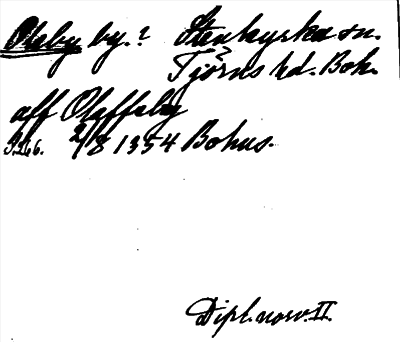 Olsby by.? Stenkyrka sn.
Tjörns hd. Boh.
aff Olafsby
S.266. 2/8 1354 Bohus.
Dipl. norv. II.